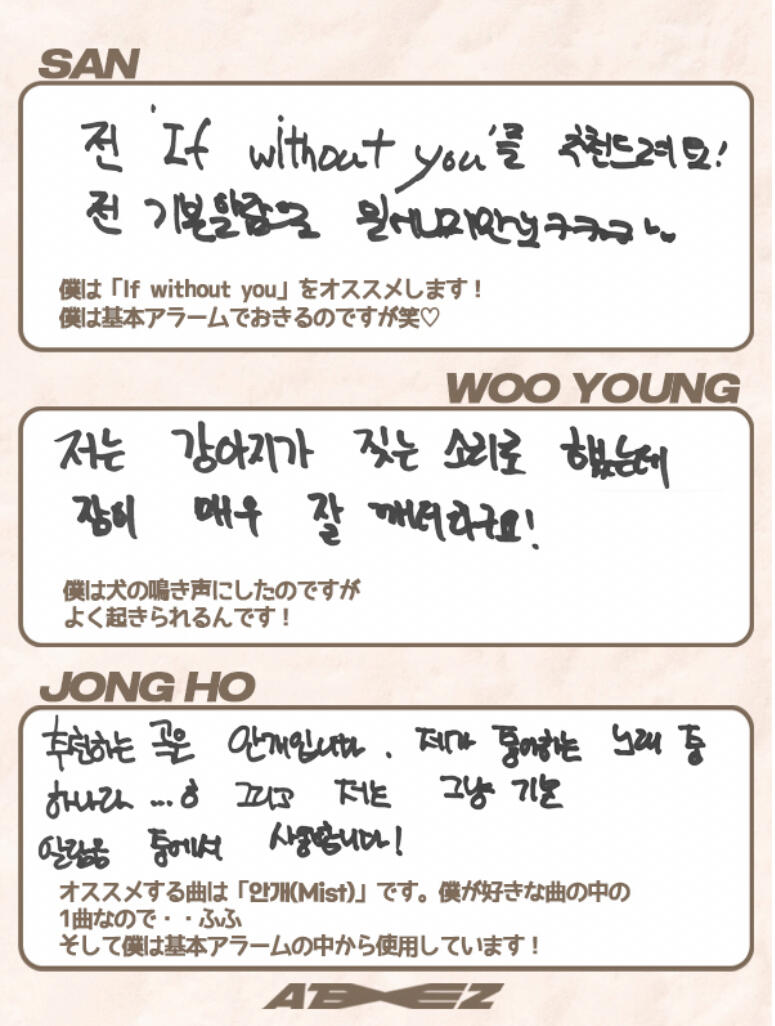 SAN
전 'If without you'를 추천드려요!
전 기본알람으로 일어나지만요ㅋㅋㅋ
僕は「If without you」をオススメします！
僕は基本アラームでおきるのですが笑♡
WOO YOUNG
저는 강아지가 짖는 소리로 했는데
잠이 매우 잘 깨더라구요!
僕は犬の鳴き声にしたのですが
よく起きられるんです！
JONG HO
추천하는 곡은 안개입니다. 제가 좋아하는 노래 중
하나라 ...ㅎ 그리고 저는 그냥 기본
알람음 중에서 사용합니다!
オススメする曲は「안개(Mist)」です。僕が好きな曲の中の
1曲なので・・ふふ
そして僕は基本アラームの中から使用しています！
ATEEZ